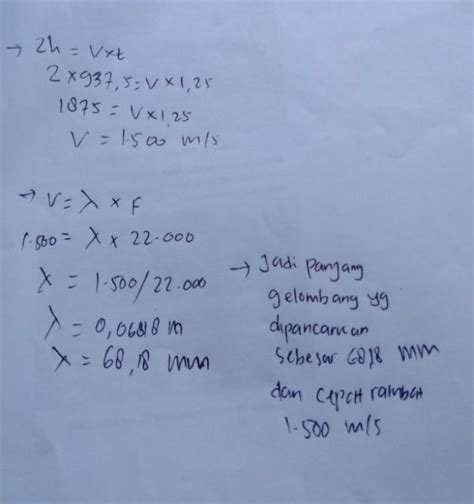 → 2h = Vxt
2 x 937,5 = V x 1,25
1875 = V x 1,25
V = 1.500 m/s
→ V = λ x F
1.500 = λ x 22.000
λ = 1.500/22.000
λ = 0,06818 m
λ = 68,18 mm
→ Jadi panjang
gelombang yg
dipancarkan
sebesar 68,18 mm
dan cepat rambat
1.500 m/s